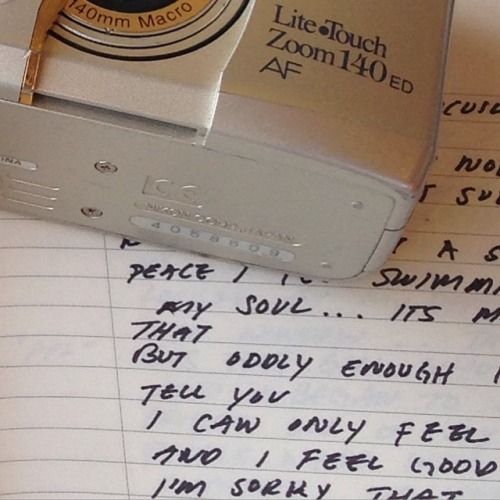 140mm Macro
Lite•Touch
Zoom 140 ED
AF
NIKON CORP. JAPAN
4058609
A S
PEACE I SWIMMI
MY SOUL... ITS M
THAT
BUT ODDLY ENOUGH I
TELL YOU
I CAN ONLY FEEL
AND I FEEL GOOD
I'M SORRY THAT